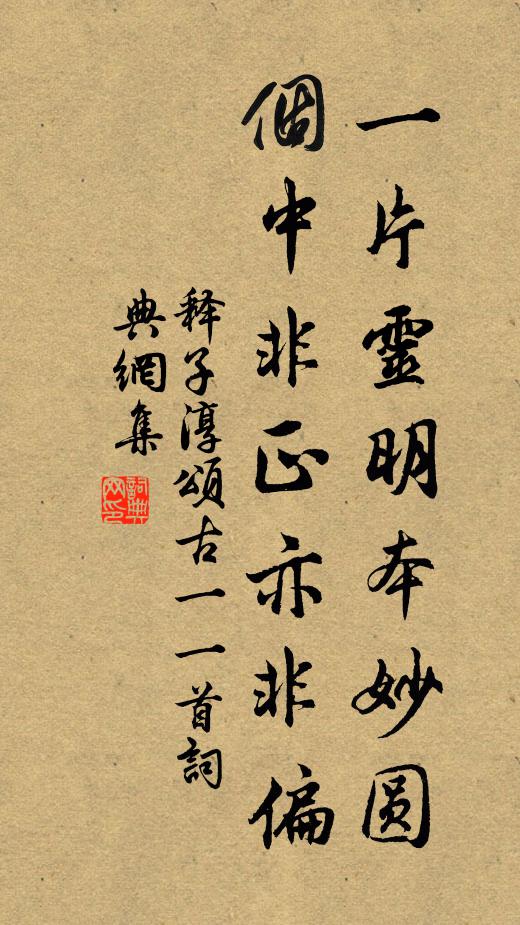 一片靈明本妙圆
個中非正亦非偏
释子淳頌古一一首詞
典網集
詞典网印